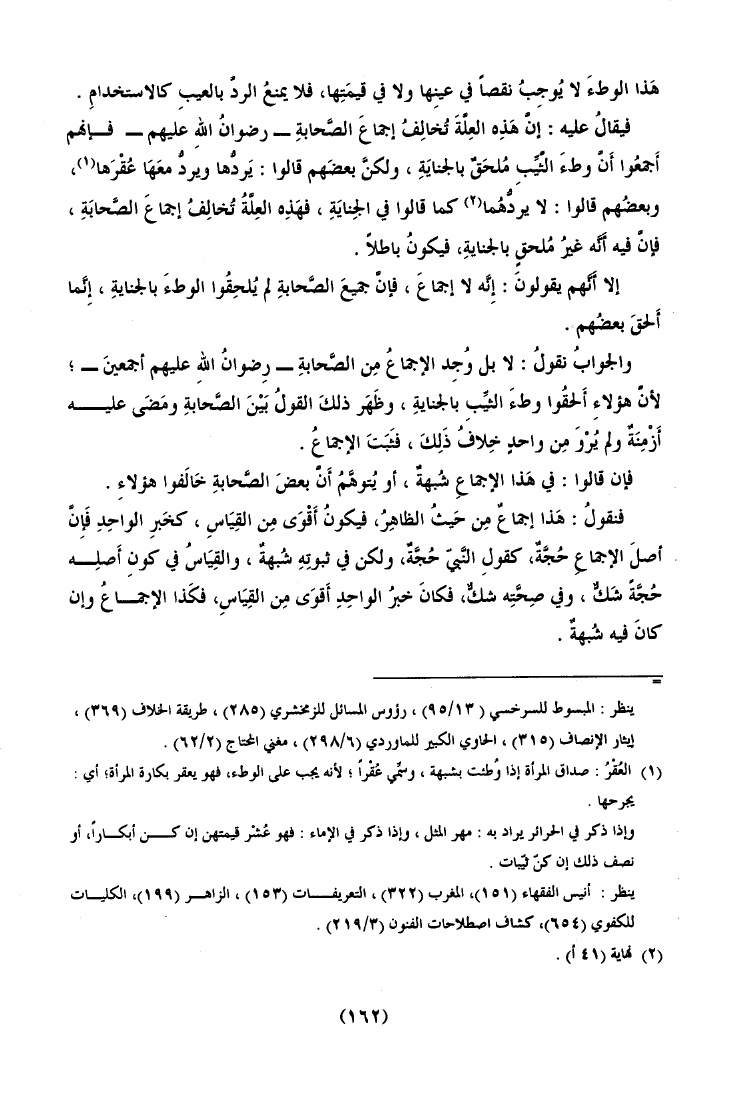 هَذا الوطءَ لا يُوجبُ نقصاً في عينِها ولا في قيمَتِها، فلا يمنعُ الردَّ بالعيبِ كالاستخدامِ .
فيقالُ عليه : إنَّ هَذِه العِلَّةَ تُخالِفُ إجماعَ الصَّحابةِ ــ رضوانُ اللهِ عليهم ــ فــإنهم
أجمعُوا أنَّ وطءَ الثَّيِّبِ مُلحَقٌ بالجنايَةِ ، ولكنَّ بعضَهم قالوا : يَردُّها ويردُّ معَهَا عُقْرَها(١)،
وبعضُهم قالوا : لا يردُّهُما(٢) كما قالوا في الجنِايَةِ ، فهَذِه العِلَّةُ تُخالِفُ إجماعَ الصَّحابَةِ ،
فإنَّ فيه أنَّه غيرُ مُلحقٍ بالجنايةِ، فيكونُ باطلاً .
إلا أنَّهم يقولونَ : إنَّه لا إجماعَ ، فإنَّ جميعَ الصَّحابةِ لم يُلحِقُوا الوطءَ بالجنايةِ ، إنَّما
ألحقَ بعضُهم .
والجوابُ نقولُ : لا بل وُجد الإجماعُ مِن الصَّحابةِ ــ رِضوانُ اللهِ عليهم أجمعينَ ــ ؛
لأنَّ هؤلاءِ ألحقُوا وطءَ الثيِّبِ بالجنايةِ ، وظَهَر ذلكَ القولُ بَيْنَ الصَّحابةِ ومَضَى عليـــه
أزْمِنَةٌ ولم يُرْوَ مِن واحدٍ خِلافُ ذَلِكَ ، فثَبَتَ الإجماعُ .
فإن قالوا : في هَذا الإجماعِ شبهةٌ ، أو يُتوهَّمُ أنَّ بعضَ الصَّحابةِ خَالَفوا هؤلاءِ .
فنقولُ : هَذا إجماعٌ مِن حَيثُ الظاهرُ، فيكونُ أقْوَى مِن القِيَاسِ ، كخَبرِ الواحدِ فَإنَّ
أصلَ الإجماعِ حُجَّةٌ، كقولِ النَّبيِّ حُجَّةٌ، ولكن في ثبوتِهِ شبهةٌ ، والقِيَاسُ في كونِ أصلِـــه
حُجَّةً شَكٌّ ، وفي صحَّتِه شكٌّ، فكانَ خبرُ الواحدِ أقوَى مِن القِيَاسِ، فكَذا الإجمـــاعُ وإن
كانَ فيه شُبهةٌ .
=
ينظر : المبسوط للسرخسي (٩٥/١٣) ، رؤوس المسائل للزمخشري (٢٨٥) ، طريقة الخلاف (٣٦٩) ،
إيثار الإنصاف (٣١٥) ، الحاوي الكبير للماوردي (٢٩٨/٦) ، مغني المحتاج (٦٢/٢) .
(١) العُقْرُ : صداق المرأة إذا وُطئت بشبهة ، وسُمِّي عُقْراً ؛ لأنه يجب على الوطء، فهو يعقر بكارة المرأة؛ أي :
يجرحها .
وإذا ذكر في الحرائر يراد به : مهر المثل ، وإذا ذكر في الإماء : فهو عُشْر قيمتهن إن كـــن أبكــاراً، أو
نصف ذلك إن كنّ ثيّبات .
ينظر : أنيس الفقهاء (١٥١)، المغرب (٣٢٢) ، التعريفــات (١٥٣) ، الزاهــر (١٩٩)، الكليــات
للكفوي (٦٥٤)، كشاف اصطلاحات الفنون (٢١٩/٣) .
(٢) نهاية (٤١ أ) .
(١٦٢)